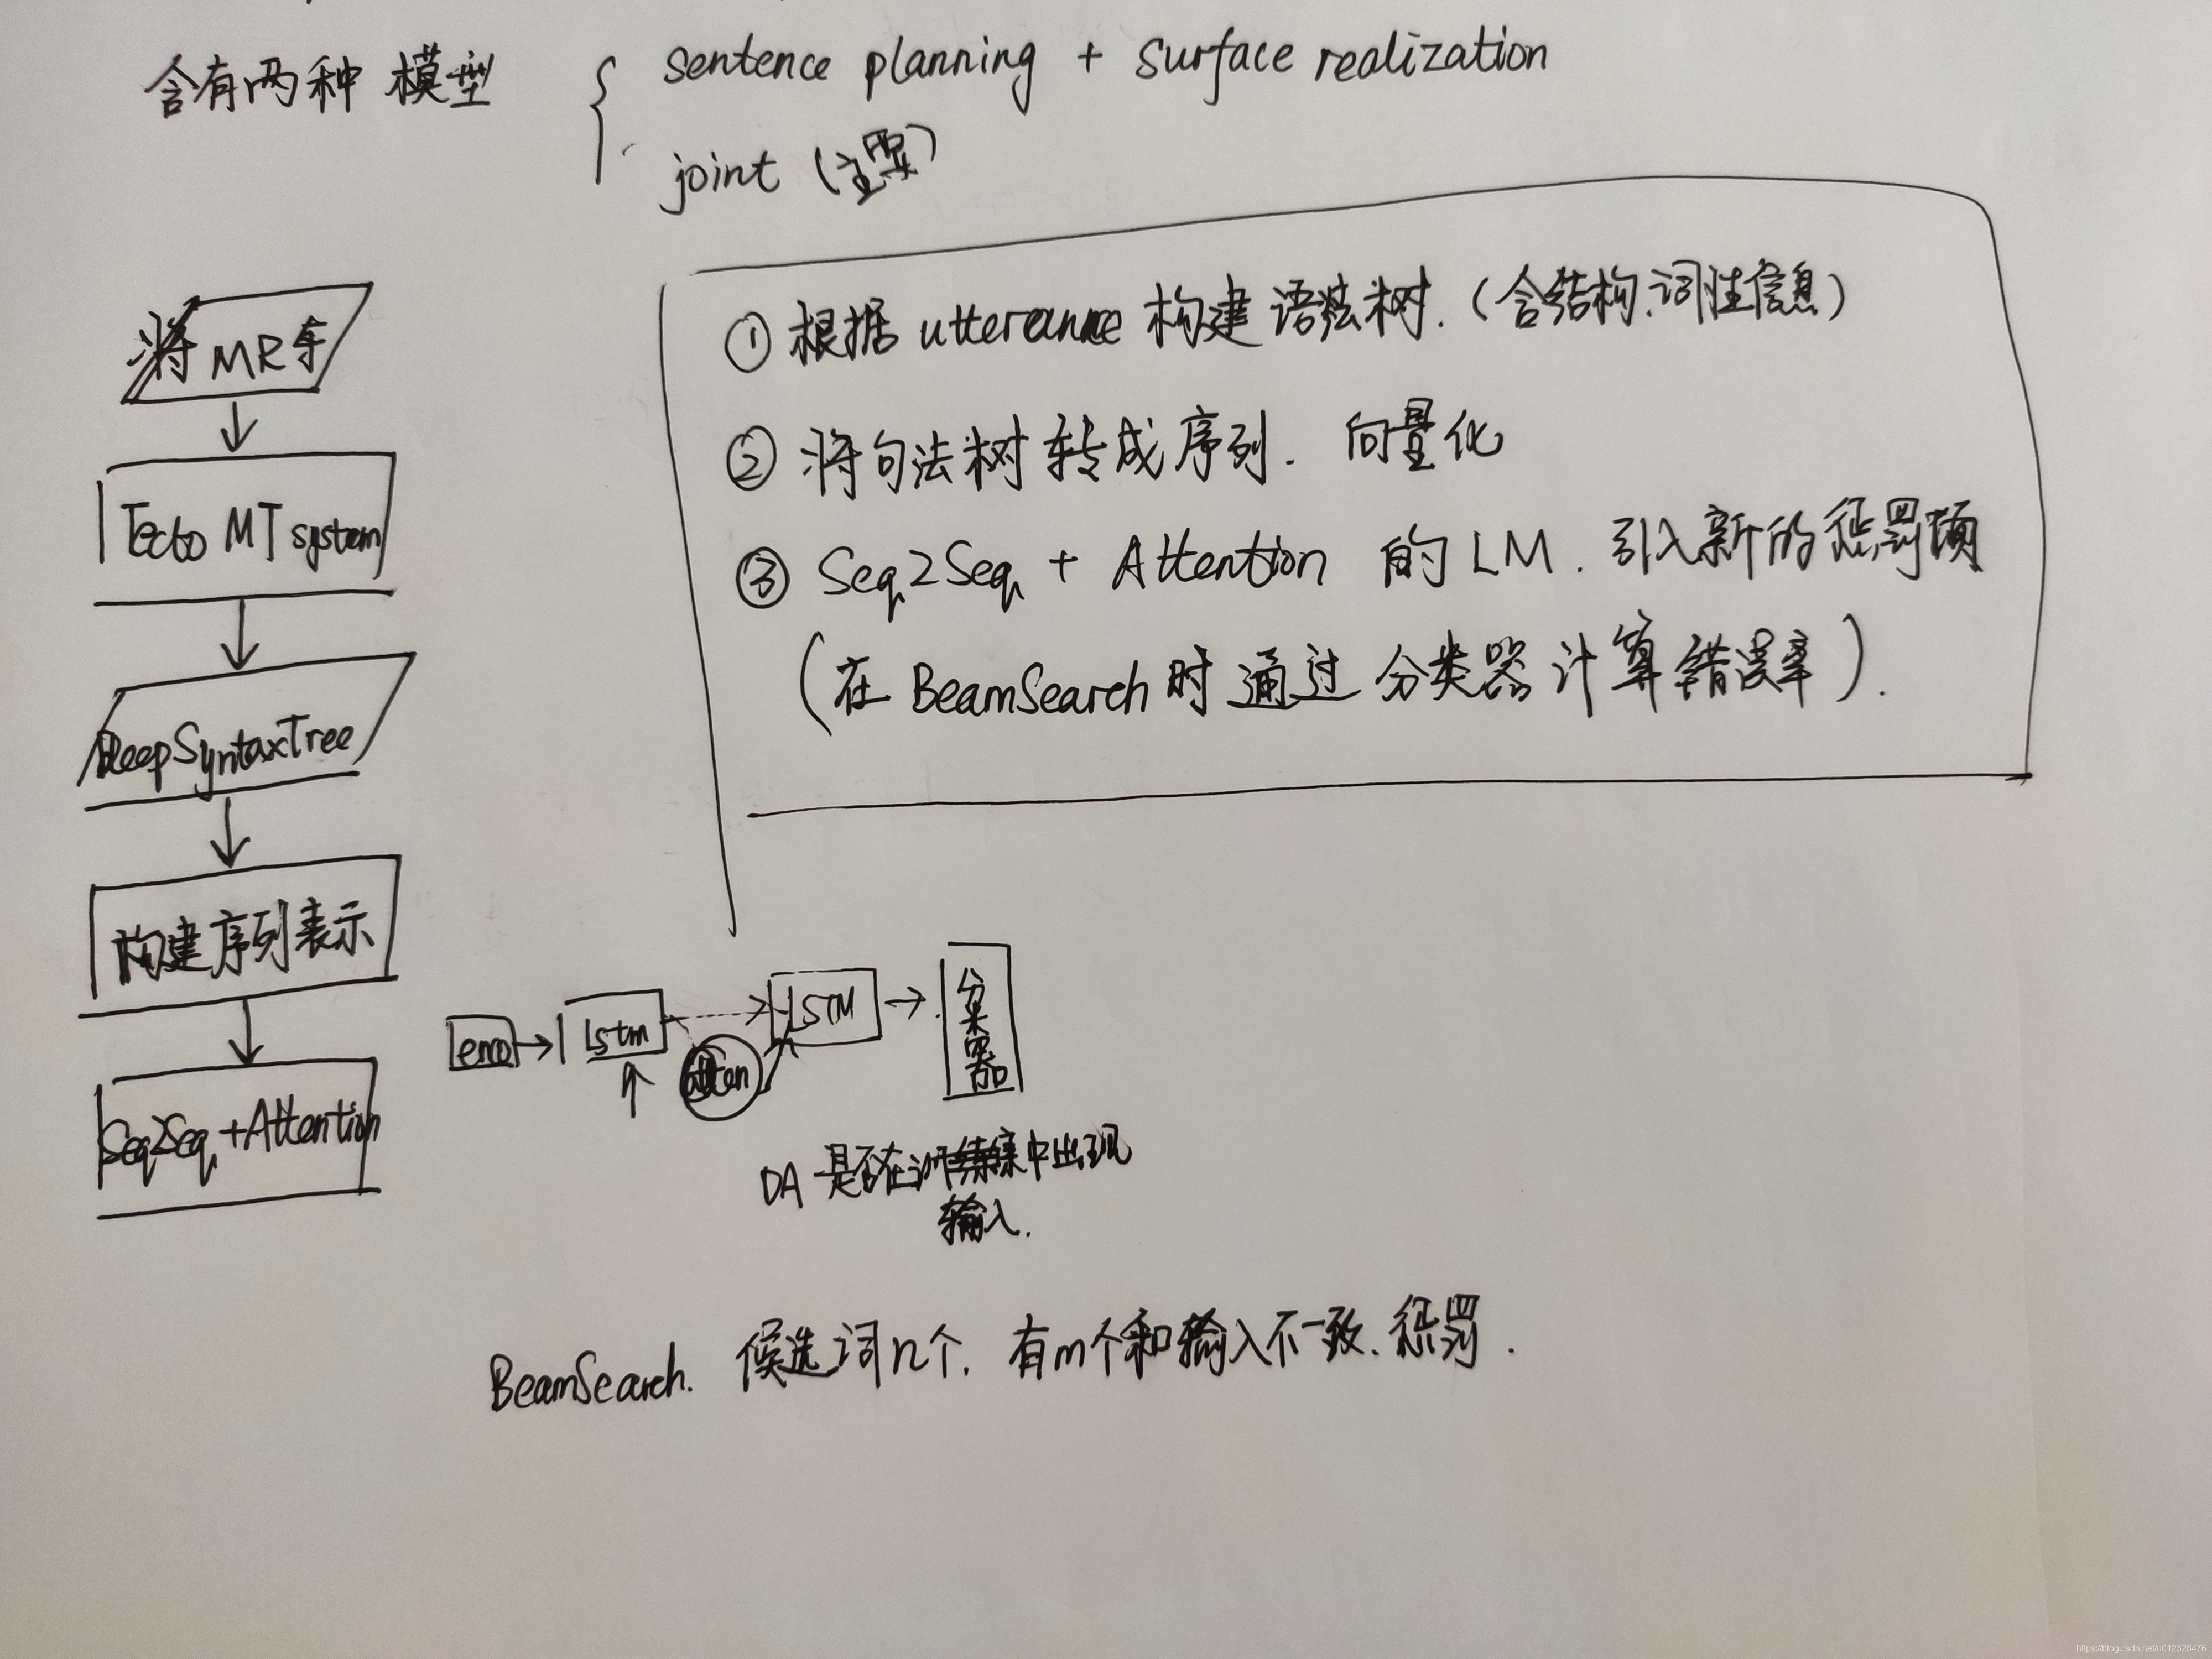 含有两种模型
sentence planning + surface realization
joint (主要)
将MR车
Tecto MT system
DeepSyntaxTree
构建序列表示
Seq2Seq+Attention
① 根据 utterance 构建语法树.(含结构.词性信息)
② 将句法树转成序列. 向量化
③ Seq2Seq + Attention 的 LM. 引入新的惩罚项
(在 BeamSearch 时通过分类器计算错误率).
lstm
LSTM
atten
DA 是否在训练集中出现
输入.
BeamSearch. 候选词n个. 有m个和输入不一致.惩罚.
https://blog.csdn.net/u012328476